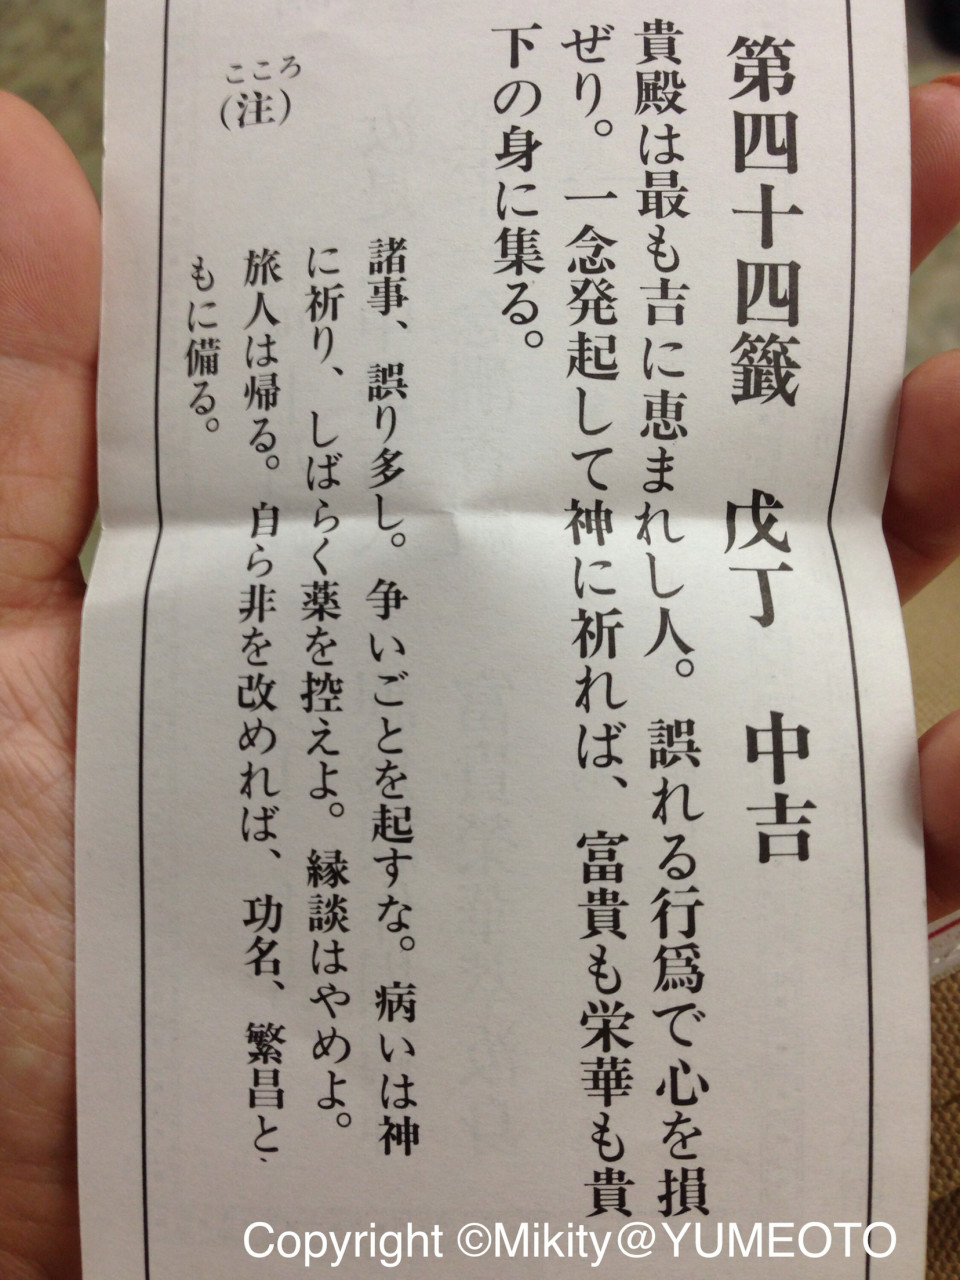 第四十四籤 戊丁 中吉
貴殿は最も吉に恵まれし人。誤れる行爲で心を損
ぜり。一念発起して神に祈れば、富貴も栄華も貴
下の身に集る。
こころ
(注)
諸事、誤り多し。争いごとを起すな。病いは神
に祈り、しばらく薬を控えよ。縁談はやめよ。
旅人は帰る。自ら非を改めれば、功名、繁昌と
もに備る。
Copyright ©Mikity@YUMEOTO